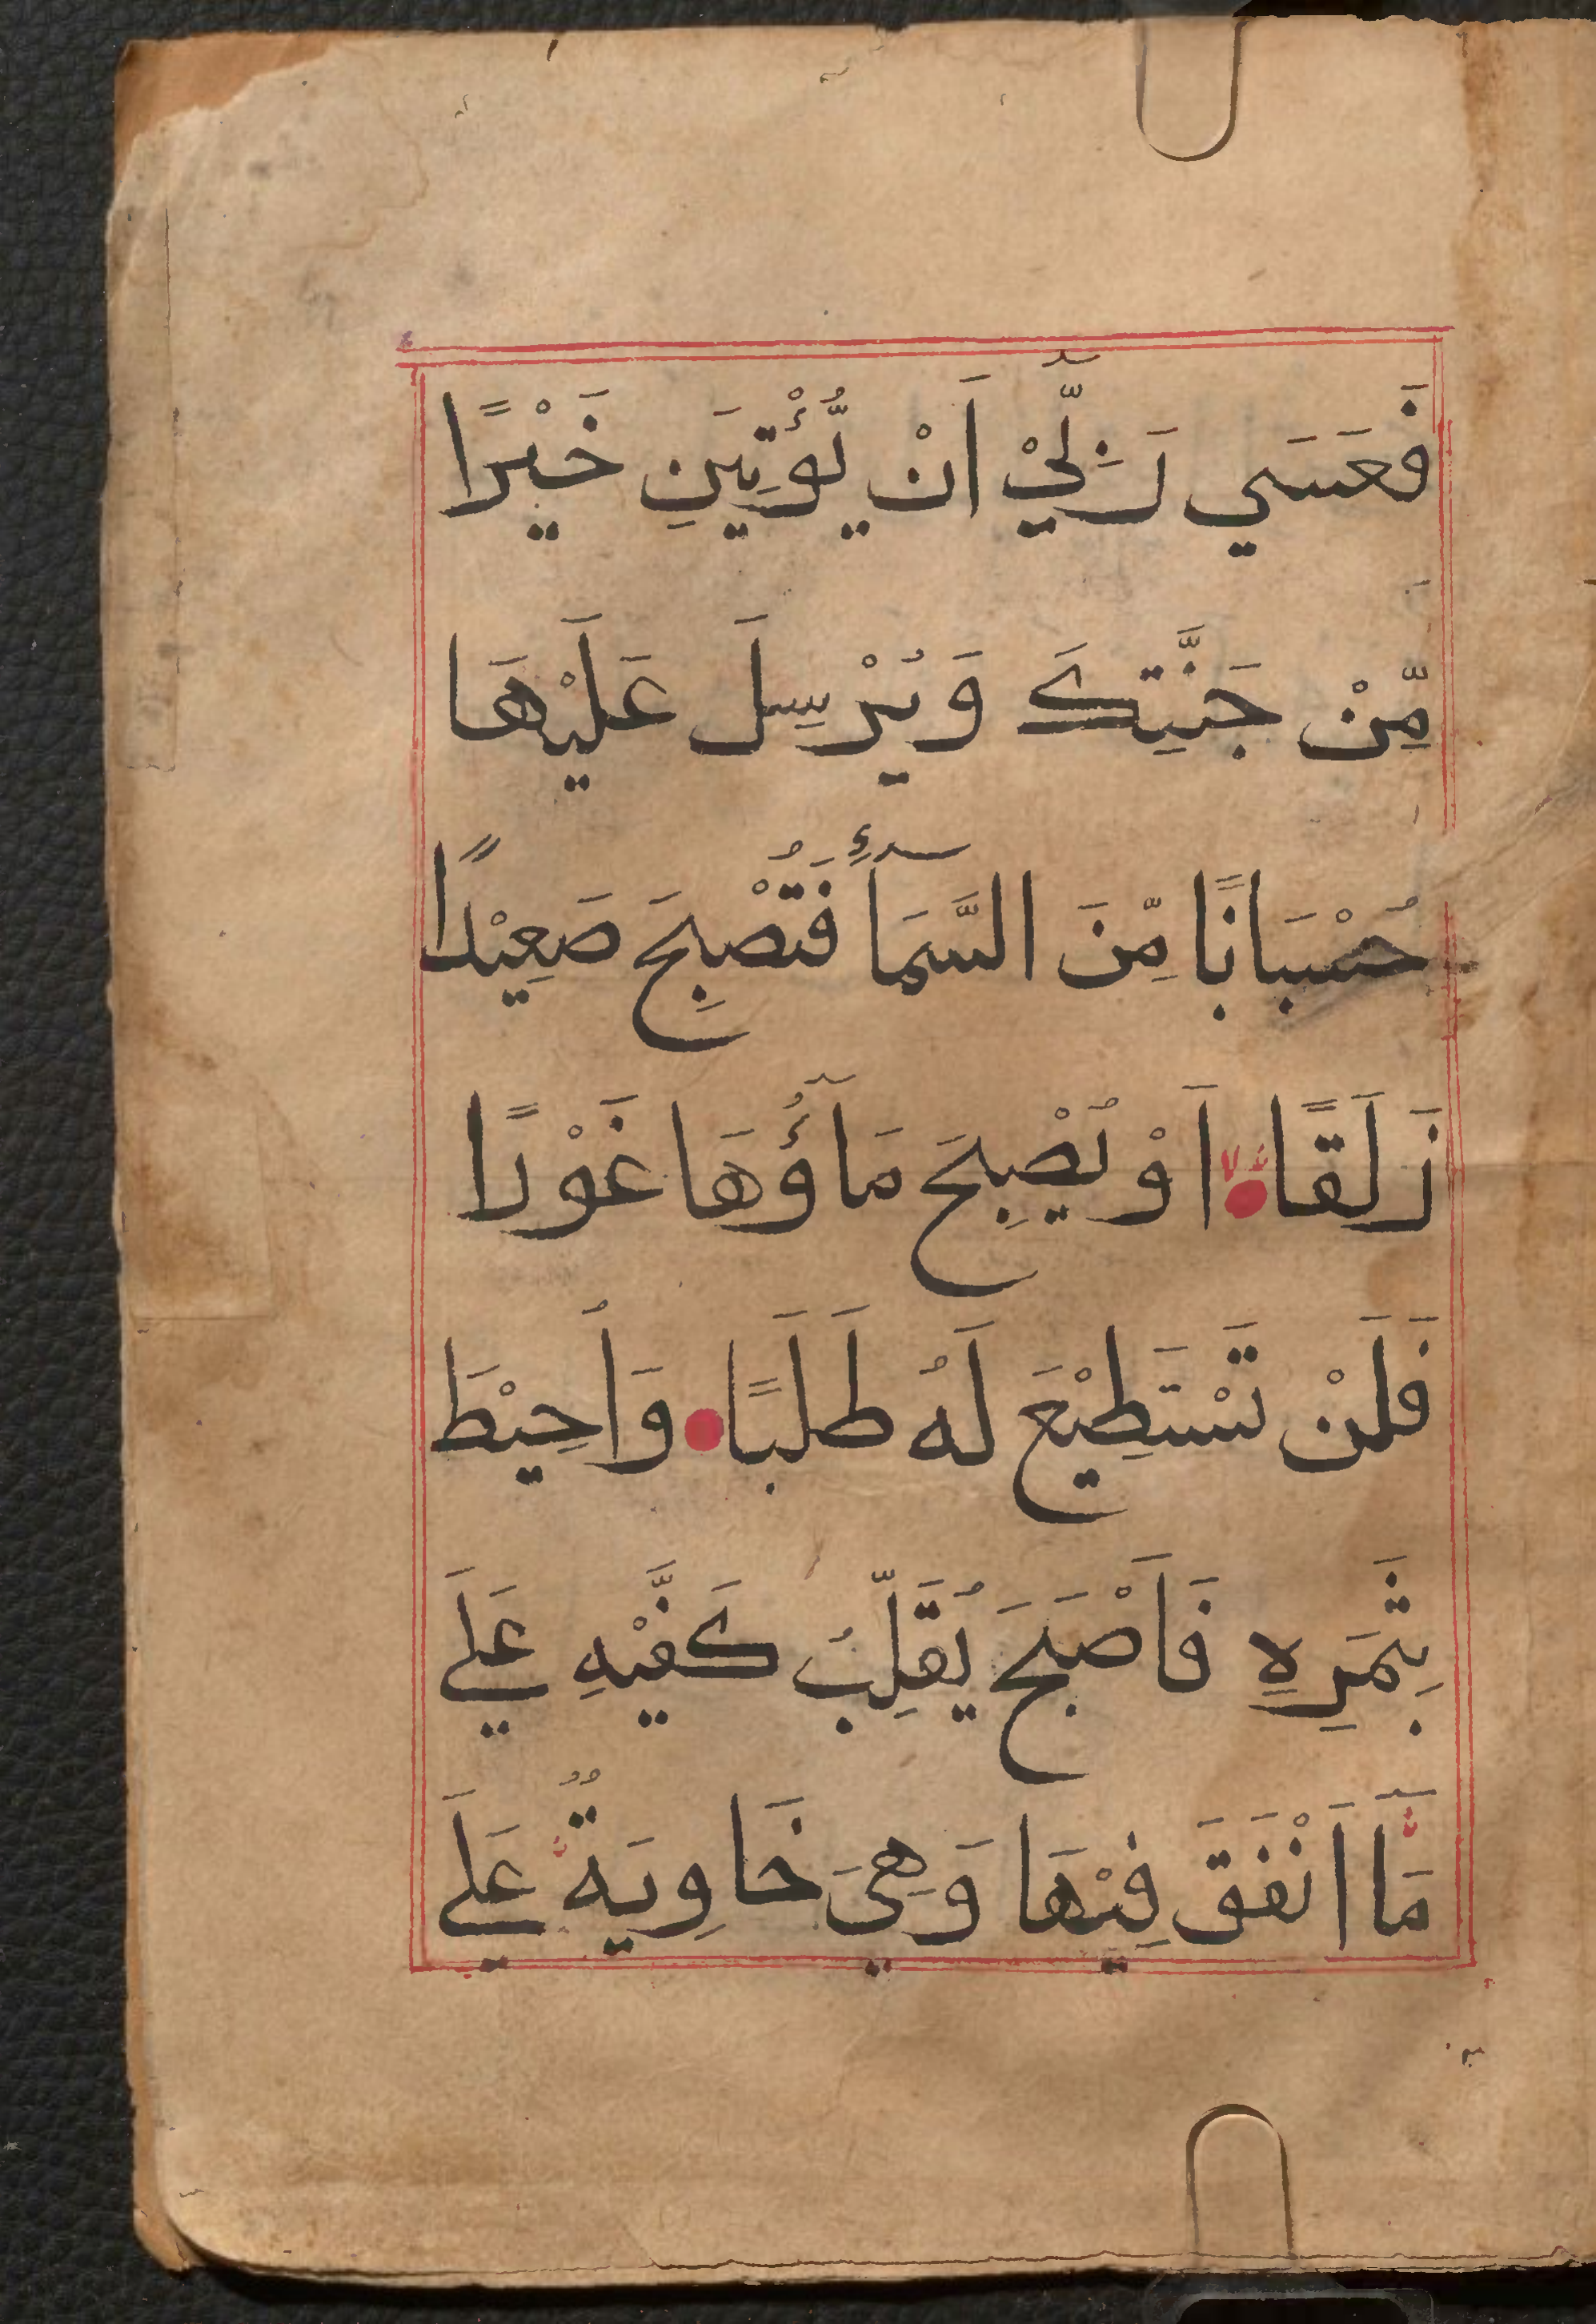 فَعَسَي رَبِّيْۤ اَنْ يُّؤْتِيَنِ خَيْرًا
مِّنْ جَنَّتِكَ وَيُرْسِلَ عَلَيْهَا
حُسْبَانًا مِّنَ السَّمَآءِ فَتُصْبِحَ صَعِيْدًا
زَلَقًا اَوْ يُصْبِحَ مَآؤُهَا غَوْرًا
فَلَنْ تَسْتَطِيْعَ لَهُ طَلَبًا وَاُحِيْطَ
بِثَمَرِهِ فَاَصْبَحَ يُقَلِّبُ كَفَّيْهِ عَلَي
مَآ اَنْفَقَ فِيْهَا وَهِيَ خَاوِيَةٌ عَلَي